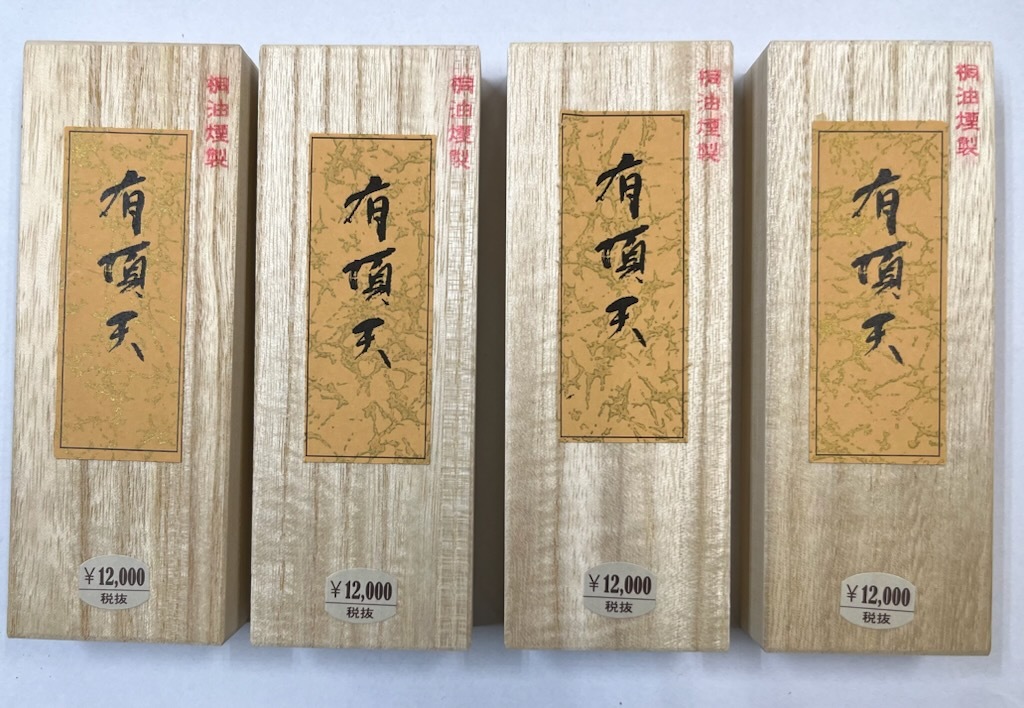 桐油煙製
有頂天
¥12,000
税抜
桐油煙製
有頂天
¥12,000
税抜
桐油煙製
有頂天
¥12,000
税抜
桐油煙製
有頂天
¥12,000
税抜